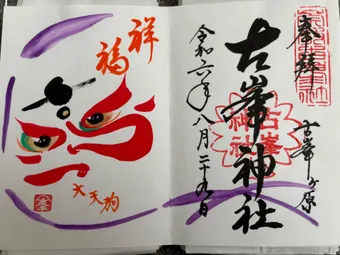 奉拝
古峯ヶ原
古峯神社
令和六年八月二十九日
古峯
神社
祥福
大天狗